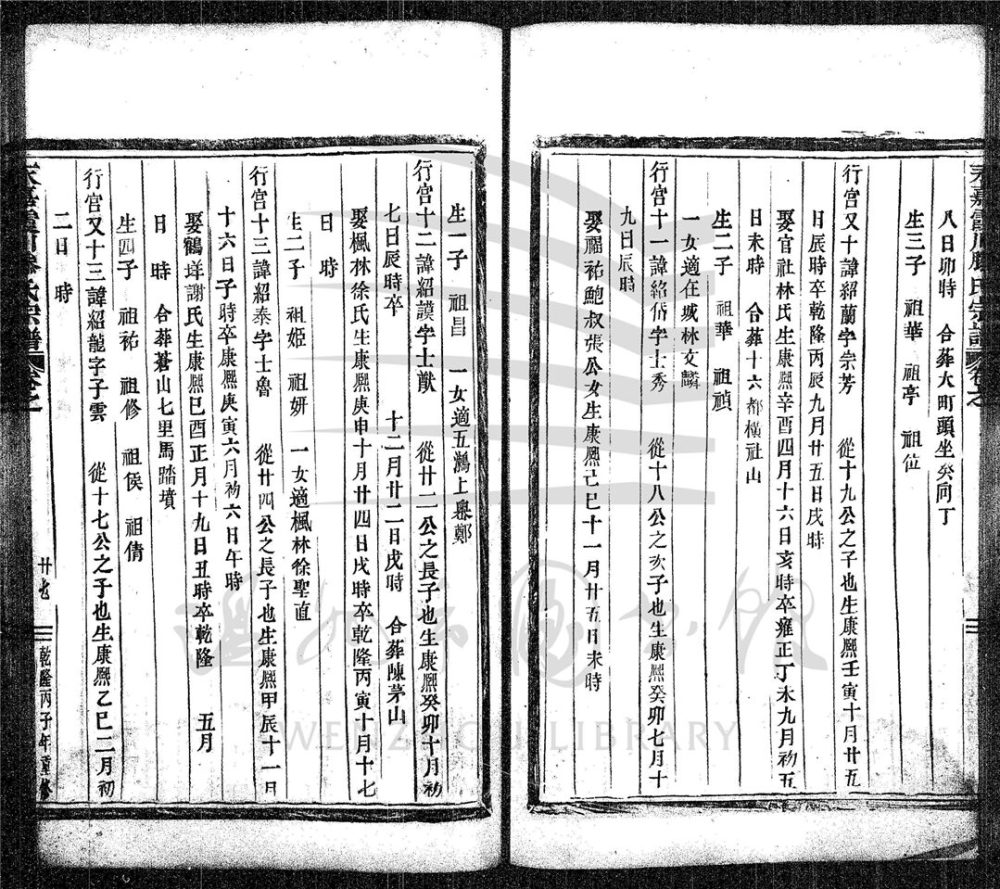 永嘉霞川滕氏宗譜 卷之一
八日卯時 合葬大町頭坐癸向丁
生三子 祖華 祖亭 祖位
行宫又十諱紹蘭字宗芳 從十九公之子也生康熙壬寅十月廿五
日辰時卒乾隆丙辰九月廿五日戌時
娶官社林氏生康熙辛酉四月十六日亥時卒雍正丁未九月初五
日未時 合葬十六都橫社山
生二子 祖華 祖禎
一女適在城林文麟
行宫十一諱紹偕字士秀 從十八公之次子也生康熙癸卯七月十
九日辰時
娶禩祐鮑叔張公女生康熙己巳十一月廿五日未時
生一子 祖昌 一女適五鸡上㙒鄭
行宫十二諱紹謨字士猷 從廿一公之長子也生康熙癸卯十月初
七日辰時卒 十二月廿二日戌時 合葬陳茅山
娶楓林徐氏生康熙庚申十月廿四日戌時卒乾隆丙寅十月十七
日 時
生二子 祖姬 祖妍 一女適楓林徐聖直
行宫十三諱紹泰字士魯 從廿四公之長子也生康熙甲辰十一月
十六日子時卒康熙庚寅六月初六日午時
娶鶴垟謝氏生康熙己酉正月十九日丑時卒乾隆 五月
日 時 合葬蒼山七里馬踏墳
生四子 祖祐 祖修 祖侯 祖倩
行宫又十三諱紹龍字子雲 從十七公之子也生康熙乙巳二月初
二日 時
永嘉霞川滕氏宗譜 卷之一
廿七
乾隆丙子年重修
溫州市圖書館
WENZHOU LIBRARY